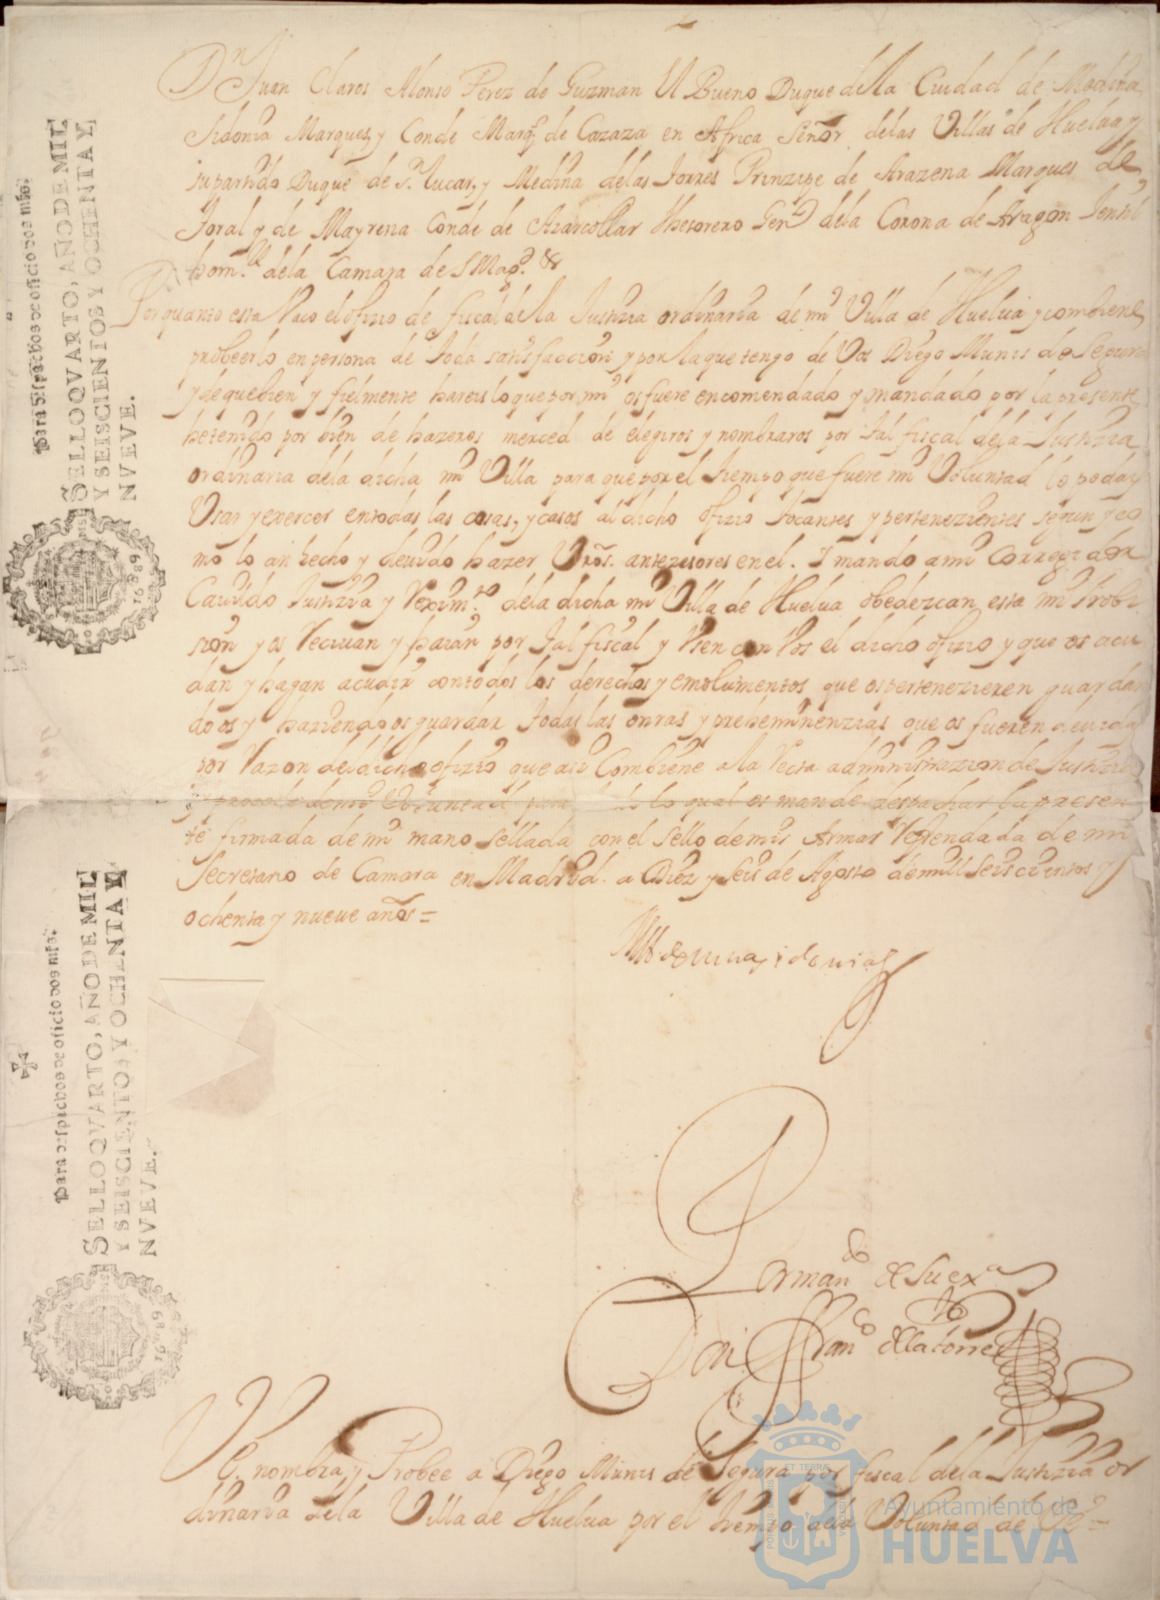 Dn Juan Claros Alonso Perez de Guzman El Bueno Duque de la Ciudad de Medina
Sidonia Marques, y Conde Marq.s de Cazaza en Africa Señor de las Villas de Huelua y
su partido Duque de S.n lucar, y Medina de las Torres Prinzipe de Arazena Marques de
Toral y de Mayrena Conde de Azarcollar Thesorero Gen.l dela Corona de Aragon Jentil
hom.e dela Camara de S Mag.d &
Por quanto esta Vaco el ofizio de fiscal de la Justizia ordinaria de mi Villa de Huelua y combiene
probeerlo en persona de toda satisfaccion y por la que tengo de Vos Diego Munis de Segura
y de que bien y fielmente hareis lo que por mi os fuere encomendado y mandado por la presente
he tenido por bien de hazeros merced de elegiros y nombraros por tal fiscal dela Justizia
ordinaria dela dicha mi Villa para que por el tiempo que fuere mi Voluntad lo podais
Vsar y exercer en todas las cosas, y casos al dicho ofizio tocantes y pertenezientes segun y co
mo lo an hecho y deuido hazer Vros. antezesores en el. Y mando a mi Corregidor
Cauildo Justizia y Rexim.to dela dicha mi Villa de Huelua obedezcan esta mi Probi
sion y os Reciuan y hayan por tal fiscal y Vsen con Vos el dicho ofizio y que os acu
dan y hagan acudir con todos los derechos y emolumentos que os pertenezieren guardan
do os y haziendo os guardar todas las onras y preheminenzias que os fueren deuidas
por Razon del dicho ofizio que asi Combiene a la Recta administrazion de Justizia
y procede de mi Voluntad para lo qual os mande despachar la presen
te firmada de mi mano sellada con el sello de mis Armas Refrendada de mi
Secretario de Camara en Madrid. a Diez y Seis de Agosto de mill Seiscientos y
ochenta y nueue años =
Medina sidonia
Por man.do de su ex.a
Don Fran.co de la torre
V.E. nombra y Probee a Diego Munis de Segura por fiscal dela Justizia or
dinaria dela Villa de Huelua por el tiempo dela Voluntad de V.E. =
Para despachos de oficio dos mrs.
SELLO QVARTO, AÑO DE MIL
Y SEISCIENTOS Y OCHENTA Y
NVEVE.
1689
Para despachos de oficio dos mrs.
SELLO QVARTO, AÑO DE MIL
Y SEISCIENTOS Y OCHENTA Y
NVEVE.
1689
Ayuntamiento de
HUELVA